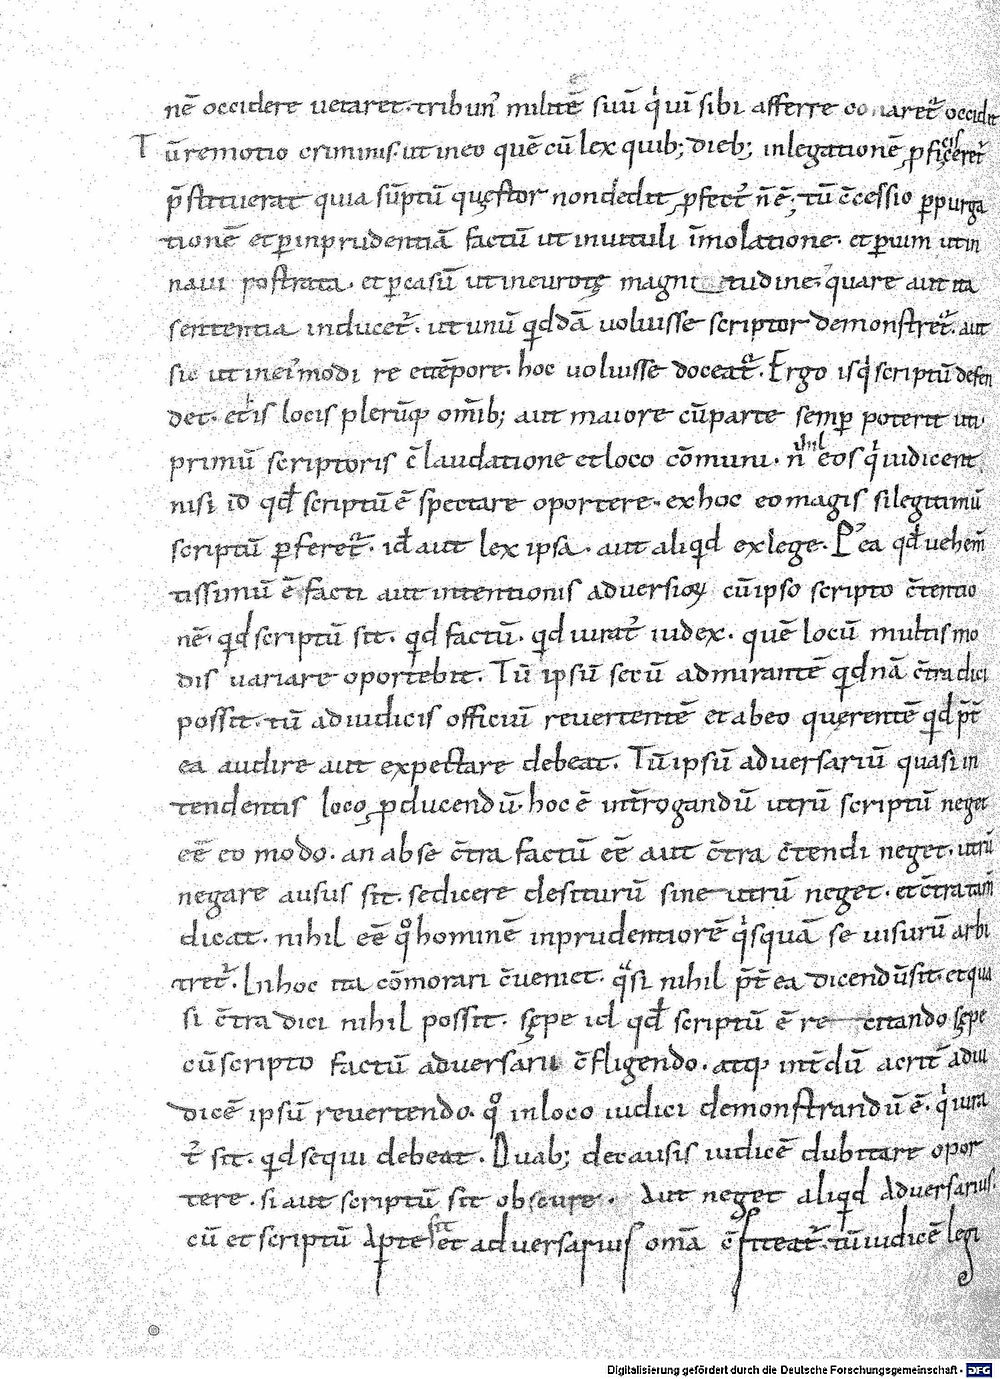 nē occidere uetaret. tribun᷒ militē suū q̇ uī sibi afferre co naret᷒ occidit
Tū remotio criminis. ut in eo quē cū lex quib; dieb; in legationē ꝓficisceret᷒
p̄stituerat quia sūptū quęstor non dedit ꝓfect᷒ n̄ ē; tū c̄cessio ꝑ purga
tionē et ꝑ inprudentiā factū ut in uituli īmolatione. et ꝑ uim ut in
naui postrata. et ꝑ casū ut in eurotę magni tudine; quare aut ita
sententia inducet᷒. ut unū qđdā uoluisse scriptor demonstret᷒. aut
sic ut in ei᷒modi re et tēpore. hoc uoluisse doceat᷒. Ergo is q̇ scriptū defen
det. et is locis plerūq; om̄ib; aut maiore cū parte semꝑ poterit uti.
primū scriptoris c̄laudatione et loco cōmuni. n̄ nihil eos q̇ iudicent
nisi id qđ scriptū ē spectare oportere. ex hoc eo magis si legitimū
scriptū ꝑferet᷒. id aut lex ipsa. aut aliqđ ex lege. P᷒ea qđ uehem̄
tissimū ē facti aut intentionis aduersioꝝ cū ipso scripto c̄tentio
nē. qđ scriptū sit. qđ factū. qđ iurat᷒ iudex. quē locū multis mo
dis uariare oportebit. Tū ipsū secū admirantē qđnā c̄tra dici
possit. tū ad iudicis officiū reuertentē et ab eo querentē qđ p̄t̄
ea audire aut expectare debeat. Tū ipsū aduersariū quasi in
tendentis loco ꝓducendū. hoc ē int̄rogandū utrū scriptū neget
eē eo modo. an ab se c̄tra factū eē aut c̄tra c̄tendi neget. utrū
negare ausus sit. se dicere desiturū sine utrū neget. et c̄tra tam̄
dicat. nihil eē q̊ hominē inprudentiorē q̇squā se uisurū arbi
tret᷒. In hoc ita cōmorari c̄ueniet. q̈si nihil p̄t̄ea dicendū sit. et qua
si c̄tra dici nihil possit. sępe id qđ scriptū ē re citando sępe
cū scripto factū aduersarii c̄fligendo. atq; int̄dū acrit̄ ad iu
dicē ipsū reuertendo. q̊ in loco iudici demonstrandū ē. q̇ iura
t᷒ sit. qđ sequi debeat. Duab; de causis iudicē dubitare opor
tere. si aut scriptū sit obscure. Aut neget aliqđ aduersarius.
cū et scriptū aperte sit et aduersarius om̄a c̄fiteat᷒. tū iudicē legi
Digitalisierung gefördert durch die Deutsche Forschungsgemeinschaft - DFG